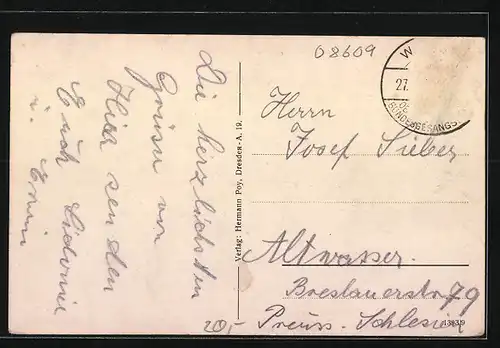 08609
W
27.
DE
BUNDESGESANGS
Die herzlichsten
Grüsse von
Hier senden
Euch Sidonie
u. Erwin
Verlag: Hermann Poy, Dresden-A. 19.
Herrn
Josef Sieber
Altwasser.
Breslauerstr. 79
Preuss. Schlesien
20,-